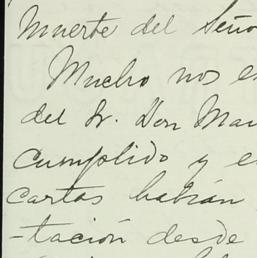 muerte del Seño
Mucho nos e
del Sr. Don Man
cumplido y e
cartas habían
-tación desde